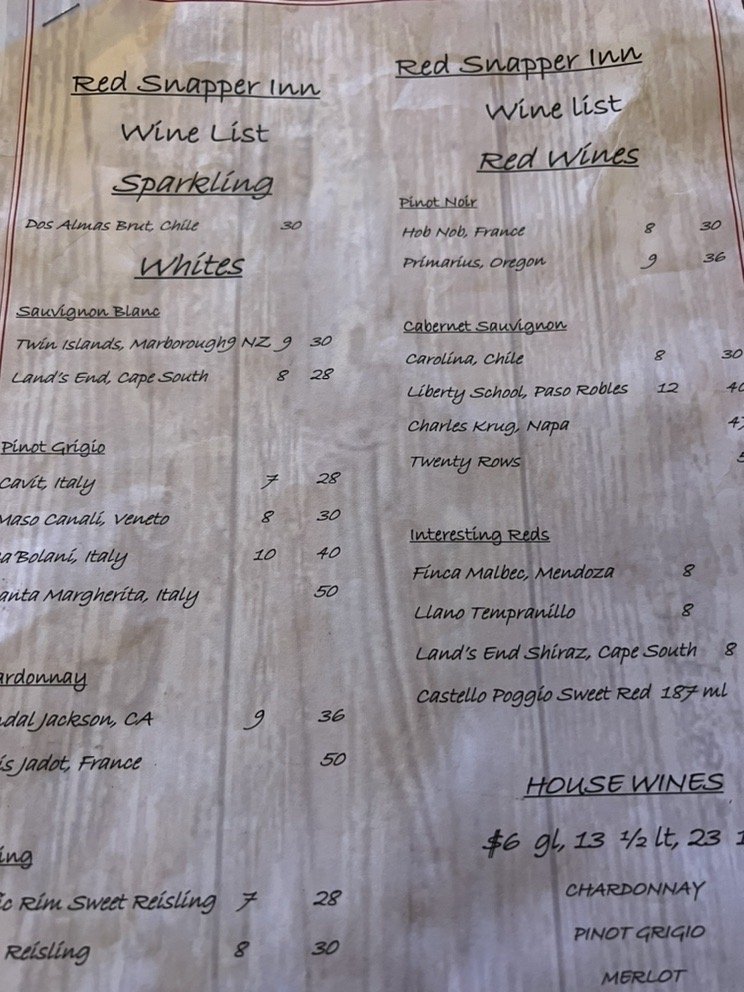 Red Snapper Inn
Wine List
Sparkling
Dos Almas Brut, Chile 30
Whites
Sauvignon Blanc
Twin Islands, Marborough9 NZ 9 30
Land's End, Cape South 8 28
Pinot Grigio
Cavit, Italy 7 28
Maso Canali, Veneto 8 30
Bolani, Italy 10 40
Margherita, Italy 50
ardonnay
Jackson, CA 9 36
Jadot, France 50
ing
Rim Sweet Reisling 7 28
Reisling 8 30
Red Snapper Inn
Wine list
Red Wines
Pinot Noir
Hob Nob, France 8 30
Primarius, Oregon 9 36
Cabernet Sauvignon
Carolina, Chile 8 30
Liberty School, Paso Robles 12
Charles Krug, Napa
Twenty Rows
Interesting Reds
Finca Malbec, Mendoza 8
Llano Tempranillo 8
Land's End Shiraz, Cape South 8
Castello Poggio Sweet Red 187 ml
HOUSE WINES
$6 gl, 13 ½ lt, 23
CHARDONNAY
PINOT GRIGIO
MERLOT